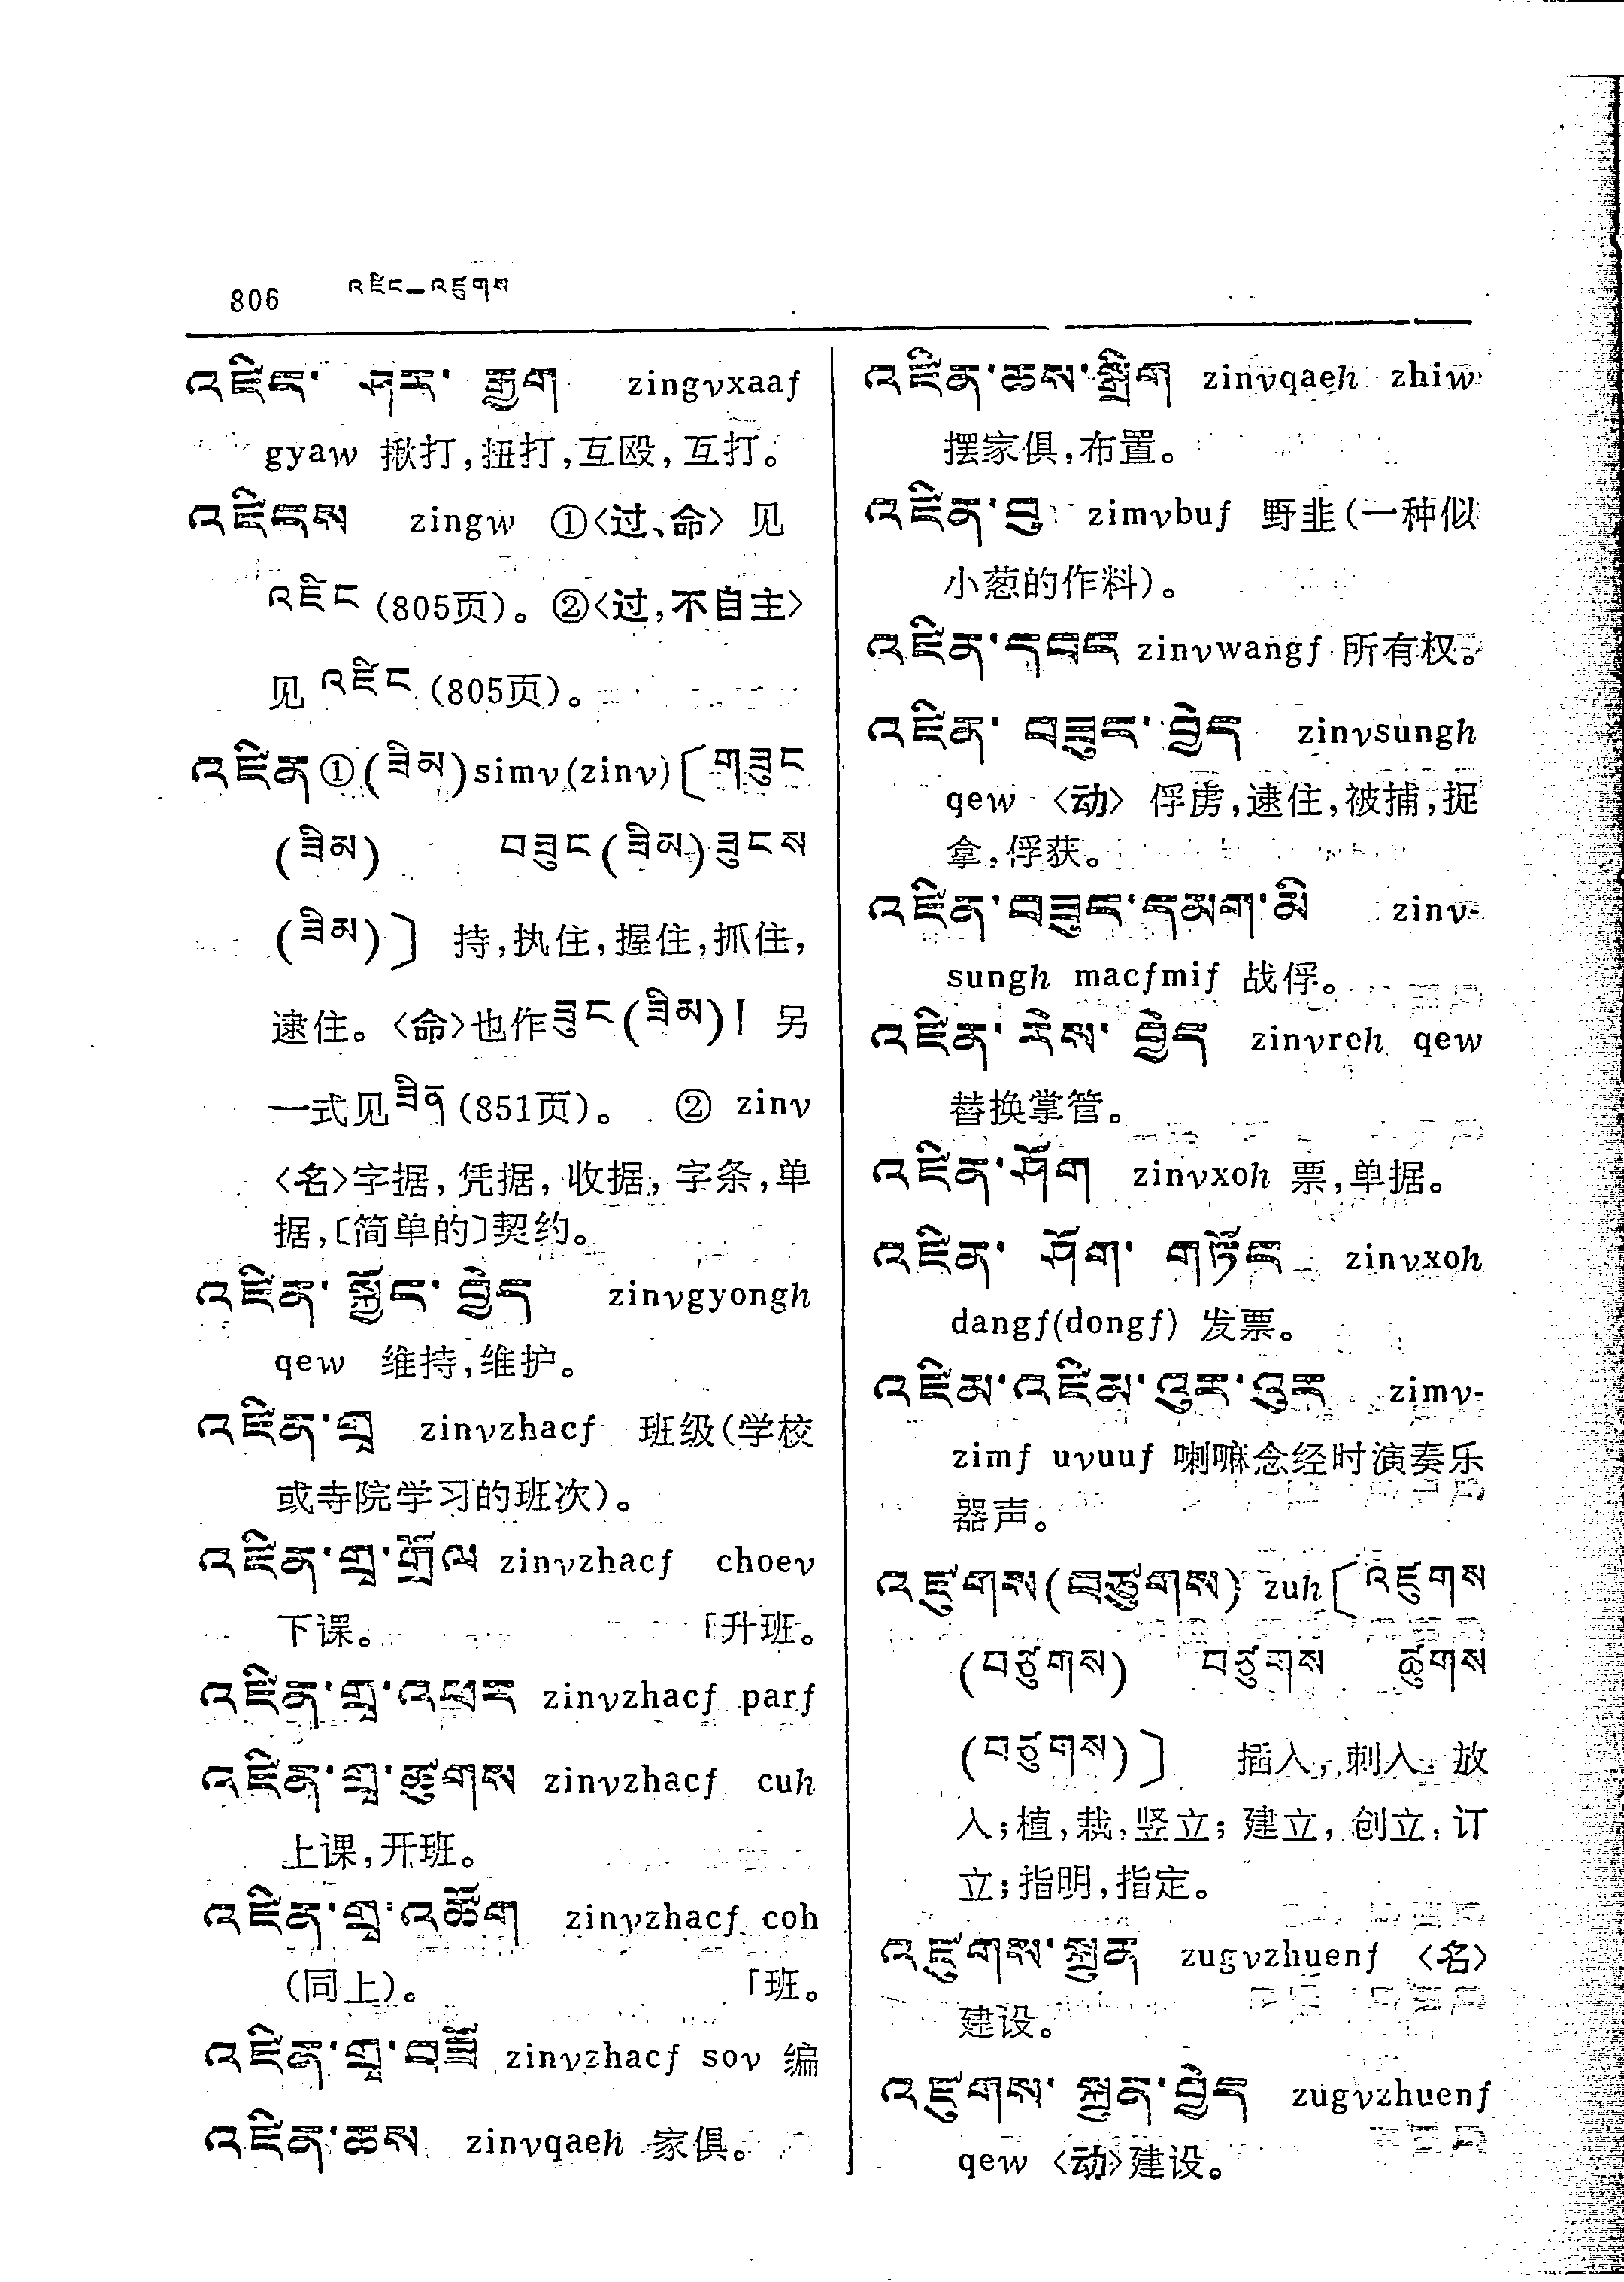 806 འཛིང—འཛུགས
འཛིང་ ཤར་ རྒྱག zingvxaaf
gyaw 揪打,扭打,互殴,互打。
འཛིངས zingw ①〈过、命〉见
འཛིང (805页)。②〈过,不自主〉
见 འཛིང (805页)。
འཛིན ①(ཟིམ) simv(zinv)〔གཟུང
(ཟིམ) བཟུང(ཟིམ)ཟུངས
(ཟིམ)〕持,执住,握住,抓住,
逮住。〈命〉也作ཟུང(ཟིམ)། 另
一式见ཟིན(851页)。 ② zinv
〈名〉字据,凭据,收据,字条,单
据,〔简单的〕契约。
འཛིན་ སྐྱོང་ བྱེད zinvgyongh
qew 维持,维护。
འཛིན་གྲྭ zinvzhacf 班级(学校
或寺院学习的班次)。
འཛིན་གྲྭ་གྲོལ zinvzhacf choev
下课。 「升班。
འཛིན་གྲྭ་འཕར zinvzhacf parf
འཛིན་གྲྭ་ཚུགས zinvzhacf cuh
上课,开班。
འཛིན་གྲྭ་འཚོག zinvzhacf coh
(同上)。 「班。
འཛིན་གྲྭ་བཟོ zinvzhacf sov 编
འཛིན་ཆས zinvqaeh 家俱。
འཛིན་ཆས་སྒྲིག zinvqaeh zhiw
摆家俱,布置。
འཛིན་བུ zimvbuf 野韭(一种似
小葱的作料)。
འཛིན་དབང zinvwangf 所有权。
འཛིན་ བཟུང་བྱེད zinvsungh
qew 〈动〉 俘虏,逮住,被捕,捉
拿,俘获。
འཛིན་བཟུང་དམག་མི zinv-
sungh macfmif 战俘。
འཛིན་ རེས་ བྱེད zinvreh qew
替换掌管。
འཛིན་ཤོག zinvxoh 票,单据。
འཛིན་ ཤོག་ གཏོང zinvxoh
dangf(dongf) 发票。
འཛིམ་འཛིམ་འུར་འུར zimv-
zimf uvuuf 喇嘛念经时演奏乐
器声。
འཛུགས(བཙུགས) zuh〔འཛུགས
(བཙུགས) བཙུགས ཚུགས
(བཙུགས)〕 插入,刺入,放
入;植,栽,竖立;建立,创立,订
立;指明,指定。
འཛུགས་སྐྲུན zugvzhuenf 〈名〉
建设。
འཛུགས་ སྐྲུན་བྱེད zugvzhuenf
qew 〈动〉建设。